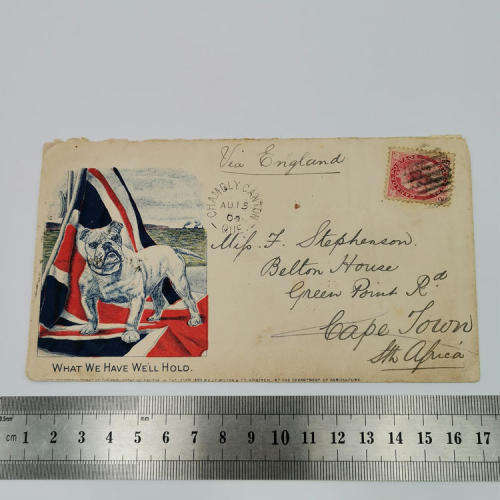 Via England
CHAMBLY CANTON
AU 13
04
QUE
Miss. F. Stephenson.
Belton House
Green Point Rd
Cape Town
Sth Africa
WHAT WE HAVE WE'LL HOLD.
0.5mm
mm
cm 1 2 3 4 5 6 7 8 9 10 11 12 13 14 15 16 17